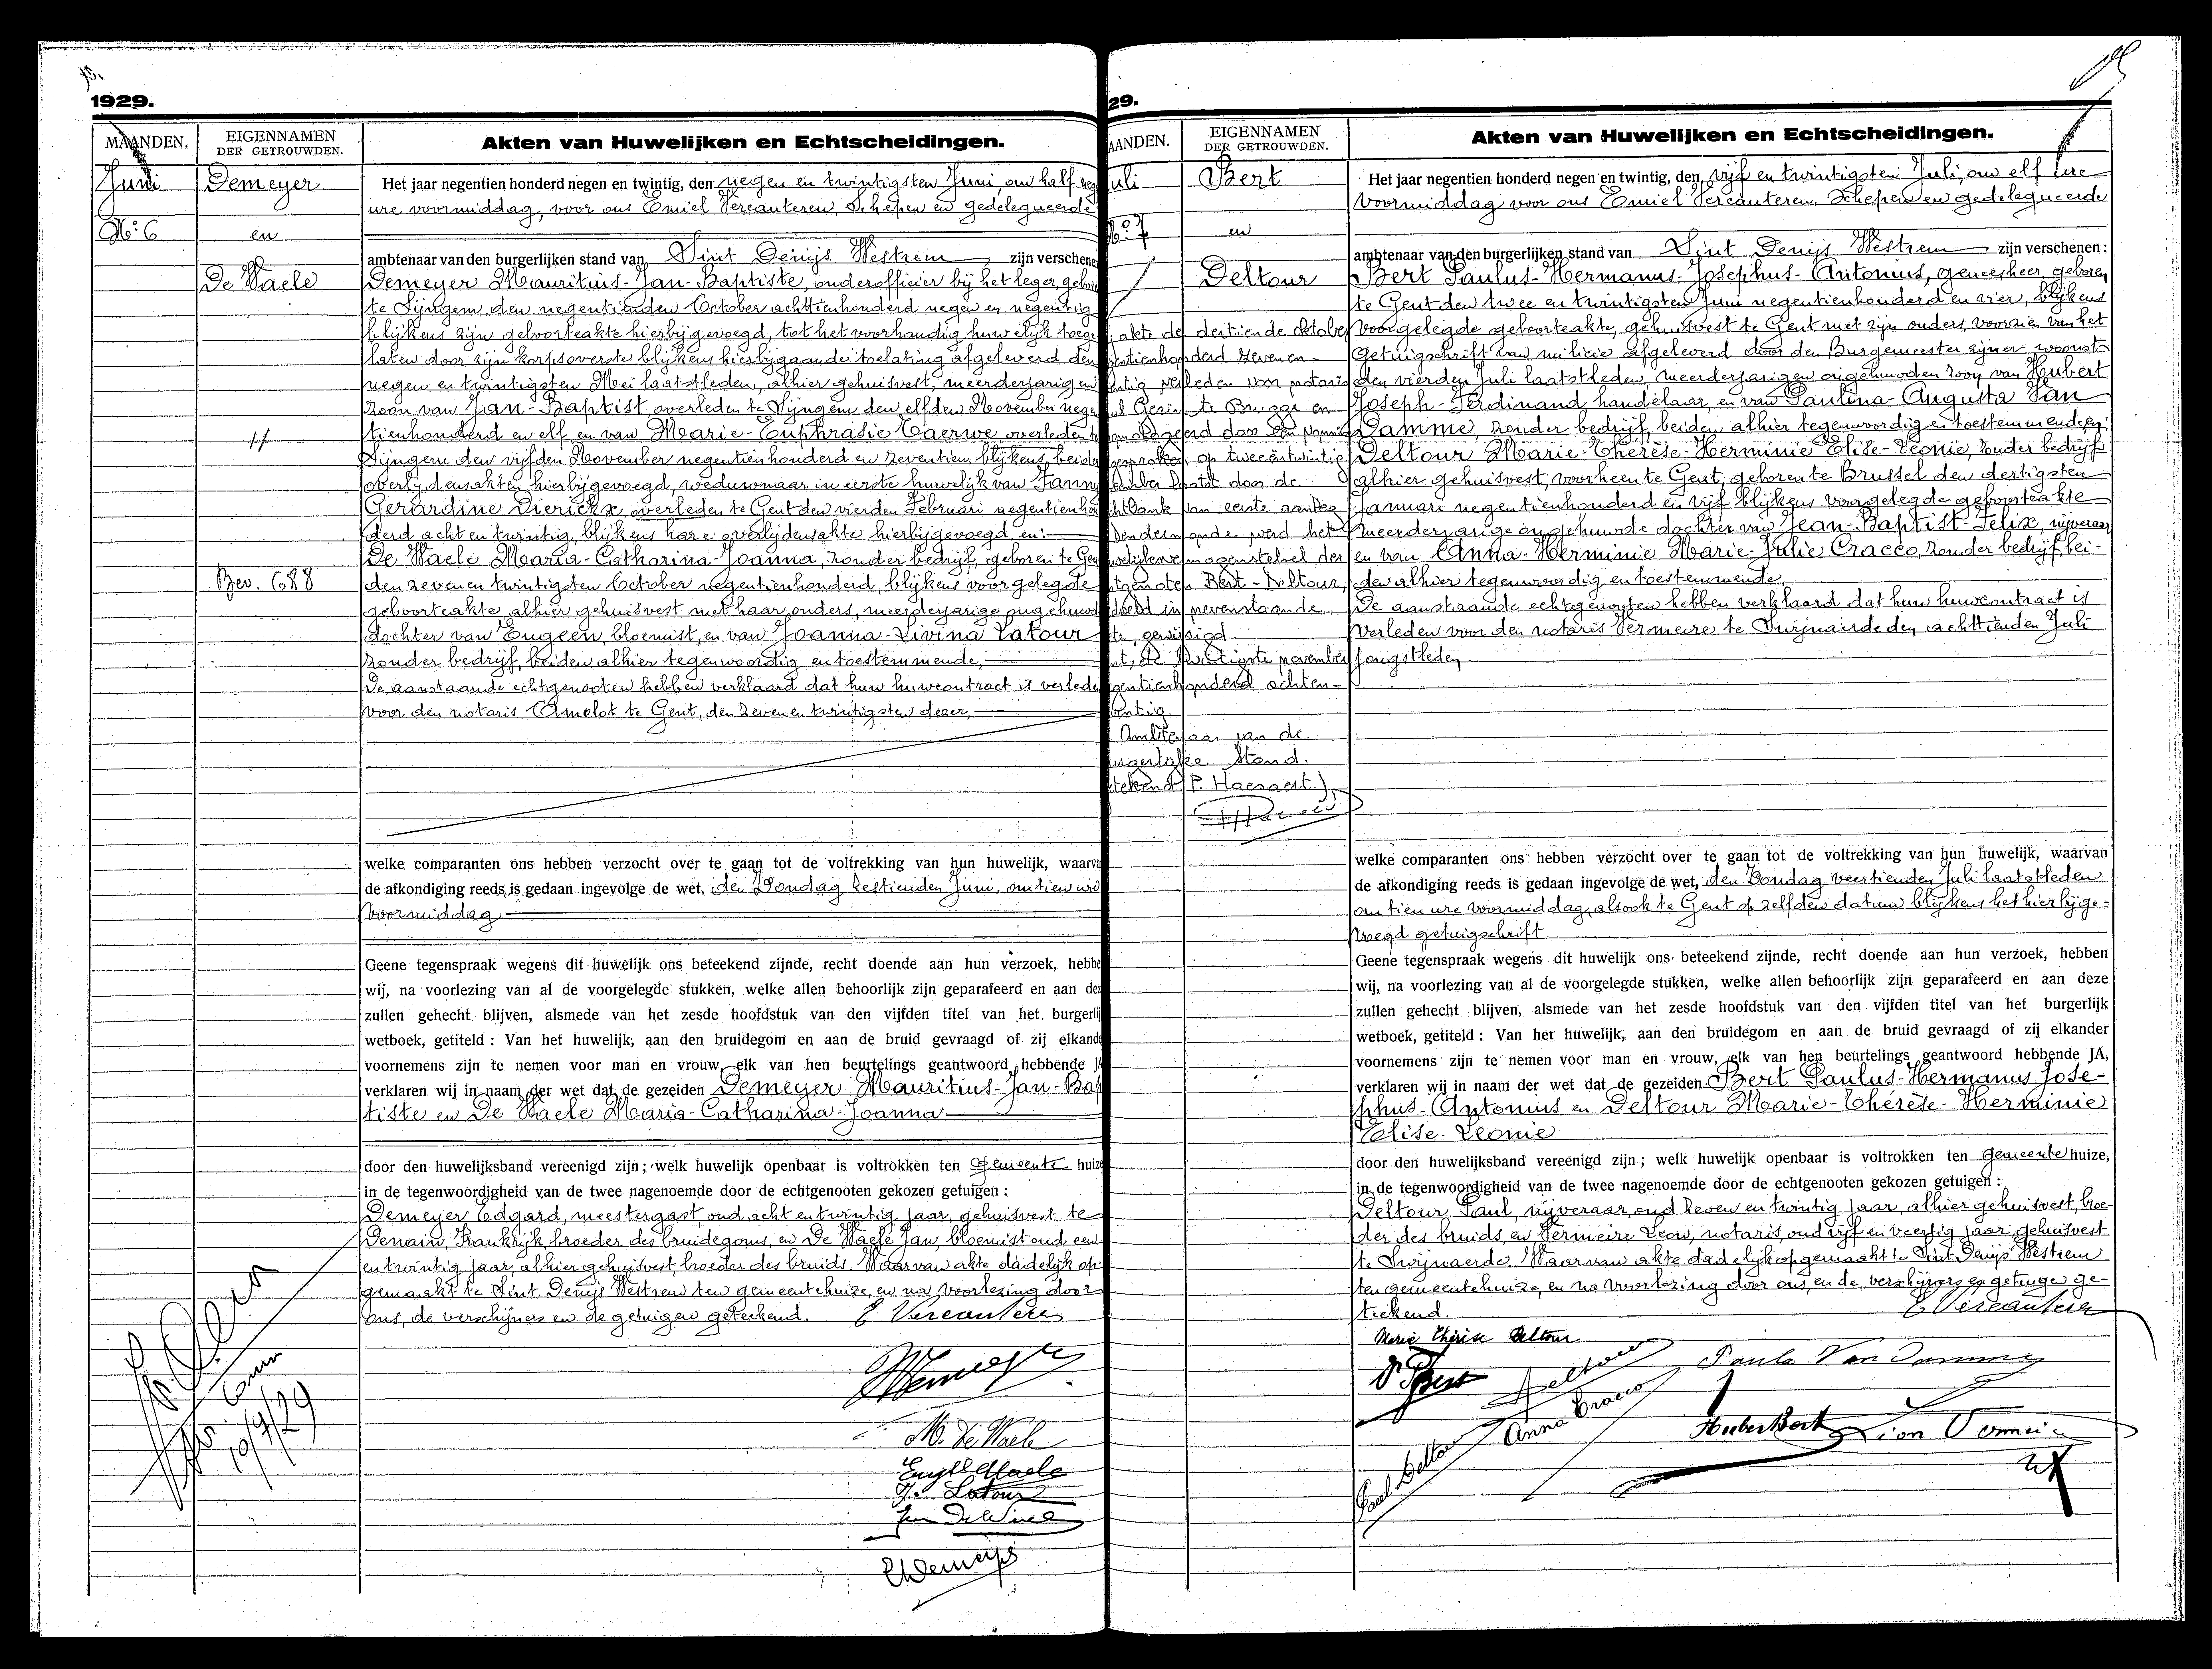 1929.
MAANDEN.
EIGENNAMEN
DER GETROUWDEN.
Akten van Huwelijken en Echtscheidingen.
Juni
No 6
Demeyer
en
De Waele
Bev. 688
Het jaar negentien honderd negen en twintig, den negen en twintigsten Juni, om half neg
ure voormiddag, voor ons Emiel Vercauteren, Schepen en gedelegueerde
ambtenaar van den burgerlijken stand van Sint Denijs Westrem zijn verschene
Demeyer Mauritius-Jan-Baptiste, onderofficier bij het leger, gebore
te Sijngem den negentienden October achttienhonderd negen en negentig
blijkens zijn geboorteakte hierbijgevoegd, tot het voorhandig huwelijk toege
laten door zijn korpsoverste blijkens hierbijgaande toelating afgeleverd den
negen en twintigsten Mei laatstleden, alhier gehuisvest, meerderjarigen
zoon van Jan-Baptist, overleden te Sijngem den elfden November nege
tienhonderd en elf en van Marie-Euphrasie Caerwe, overleden te
Sijngem den vijfden November negentienhonderd en zeventien, blijkens beide
overlijdensakten hierbijgevoegd, weduwnaar in eerste huwelijk van Fanny
Gerardine Dierickx, overleden te Gent den vierden Februari negentienhon
derd acht en twintig, blijkens hare overlijdensakte hierbijgevoegd, en:
De Waele Maria-Catharina-Joanna, zonder bedrijf, geboren te Gen
den zeven en twintigsten October negentienhonderd, blijkens voorgelegde
geboorteakte, alhier gehuisvest met haar ouders, meerderjarige ongehuwd
dochter van Eugeen, bloemist, en van Joanna-Livina Latour
zonder bedrijf, beiden alhier tegenwoordig en toestemmende,
De aanstaande echtgenooten hebben verklaard dat hun huwcontract is verlede
voor den notaris Amelot te Gent, den zeven en twintigsten dezer,
welke comparanten ons hebben verzocht over te gaan tot de voltrekking van hun huwelijk, waarva
de afkondiging reeds is gedaan ingevolge de wet, den Zondag zestienden Juni, om tien ure
voormiddag
Geene tegenspraak wegens dit huwelijk ons beteekend zijnde, recht doende aan hun verzoek, hebbe
wij, na voorlezing van al de voorgelegde stukken, welke allen behoorlijk zijn geparafeerd en aan dez
zullen gehecht blijven, alsmede van het zesde hoofdstuk van den vijfden titel van het burgerlij
wetboek, getiteld : Van het huwelijk, aan den bruidegom en aan de bruid gevraagd of zij elkande
voornemens zijn te nemen voor man en vrouw, elk van hen beurtelings geantwoord hebbende JA
verklaren wij in naam der wet dat de gezeiden Demeyer Mauritius-Jan-Bap
tiste en De Waele Maria-Catharina-Joanna
door den huwelijksband vereenigd zijn ; welk huwelijk openbaar is voltrokken ten Gemeente huize
in de tegenwoordigheid van de twee nagenoemde door de echtgenooten gekozen getuigen :
Demeyer Edgard, meestergast, oud acht en twintig jaar, gehuisvest te
Denain, Frankrijk, broeder des bruidegoms, en De Waele Jan, bloemist oud een
en twintig jaar, alhier gehuisvest, broeder des bruids. Waarvan akte dadelijk op-
gemaakt te Sint Denijs Westrem ten gemeentehuize, en na voorlezing door
ons, de verschijners en de getuigen geteekend. E Vercauteren
10/9/29
M. De Waele
J. Latour
29.
AANDEN.
EIGENNAMEN
DER GETROUWDEN.
Akten van Huwelijken en Echtscheidingen.
uli
No 7
Bert
en
Deltour
akte de dertiende oktober
gentienhonderd zeven en-
verleden voor notaris
te Brugge en
door een vonnis
gesproken op tweeëntwintig
laatst door de
chtbank van eerste aanleg
Dendermonde werd het
welijksvermogenstelsel der
tgenoten Bert-Deltour,
doeld in nevenstaande
te, gewijzigd.
nt, de twintigste november
gentienhonderd achten-
ventig
Ambtenaar van de
urgerlijke Stand.
tekend (P. Haesaert.)
Het jaar negentien honderd negen en twintig, den vijf en twintigsten Juli, om elf ure
voormiddag voor ons Emiel Vercauteren, Schepen en gedelegueerde
ambtenaar van den burgerlijken stand van Sint Denijs Westrem zijn verschenen :
Bert Paulus-Hermanus-Josephus-Antonius, geneesheer, geboren
te Gent den twee en twintigsten Juni negentienhonderd en vier, blijkens
voorgelegde geboorteakte, gehuisvest te Gent met zijn ouders, voorzien van het
Getuigschrift van milicie afgeleverd door den Burgemeester zijner woonst
den vierden Juli laatstleden, meerderjarigen ongehuwden zoon van Hubert
Joseph-Ferdinand, handelaar, en van Paulina-Augusta Van
Damme, zonder bedrijf, beiden alhier tegenwoordig en toestemmende, en:
Deltour Marie-Thérèse-Herminie Elise-Leonie, zonder bedrijf
alhier gehuisvest, voorheen te Gent, geboren te Brussel den dertigsten
Januari negentienhonderd en vijf blijkens voorgelegde geboorteakte
meerderjarige ongehuwde dochter van Jean-Baptist-Felix, nijveraar
en van Anna-Herminie Marie-Julie Cracco, zonder bedrijf, bei-
den alhier tegenwoordig en toestemmende,
De aanstaande echtgenooten hebben verklaard dat hun huwcontract is
verleden voor den notaris Vermeire te Swijnaerde den achttienden Juli
jongstleden
welke comparanten ons hebben verzocht over te gaan tot de voltrekking van hun huwelijk, waarvan
de afkondiging reeds is gedaan ingevolge de wet, den Zondag veertienden Juli laatstleden
om tien ure voormiddag, alsook te Gent op zelfden datum blijkens het hierbijge-
voegd getuigschrift
Geene tegenspraak wegens dit huwelijk ons beteekend zijnde, recht doende aan hun verzoek, hebben
wij, na voorlezing van al de voorgelegde stukken, welke allen behoorlijk zijn geparafeerd en aan deze
zullen gehecht blijven, alsmede van het zesde hoofdstuk van den vijfden titel van het burgerlijk
wetboek, getiteld : Van het huwelijk, aan den bruidegom en aan de bruid gevraagd of zij elkander
voornemens zijn te nemen voor man en vrouw, elk van hen beurtelings geantwoord hebbende JA,
verklaren wij in naam der wet dat de gezeiden Bert Paulus-Hermanus Jose-
phus-Antonius en Deltour Marie-Thérèse-Herminie
Elise-Leonie
door den huwelijksband vereenigd zijn ; welk huwelijk openbaar is voltrokken ten gemeente huize,
in de tegenwoordigheid van de twee nagenoemde door de echtgenooten gekozen getuigen :
Deltour Paul, nijveraar, oud zeven en twintig jaar, alhier gehuisvest, broe-
der des bruids, en Vermeire Leon, notaris, oud vijf en veertig jaar, gehuisvest
te Swijnaerde. Waarvan akte dadelijk opgemaakt te Sint Denijs Westrem
ten gemeentehuize, en na voorlezing door ons, en de verschijners en getuigen ge-
teekend. E Vercauteren
Marie Thérèse Deltour
P. Bert
Deltour
Paula Van Damme
Anna Cracco
Paul Deltour
Hubert Bert
Léon Vermeire